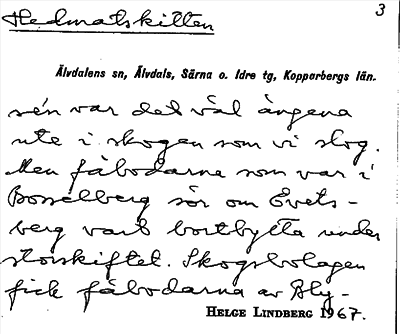 Hedmatskitten
3
Älvdalens sn, Älvdals, Särna o. Idre tg, Kopparbergs län.
sén var det väl ängena
ute i skogen som vi slog.
Men fäbodarna som var i
Bosselberg sör om Evets-
berg vart bortbytta under
storskiftet. Skogsbolagen
fick fäbodarna av Bly-
HELGE LINDBERG 1967.